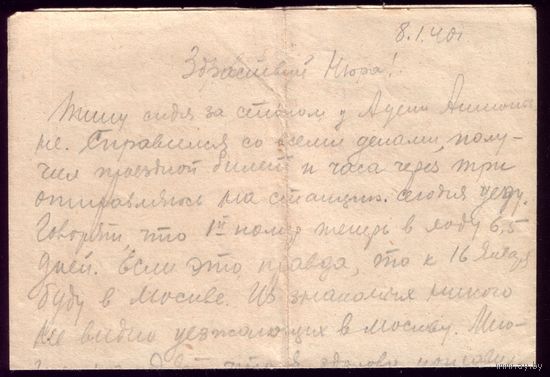 8.1.40г
Здраствуй Нюра!
Пишу сидя за столом у
не. Справился со всеми делами, полу-
чил проездной билет и часа через три
отправляюсь на станцию. сегодня уеду.
Говорят что 1й номер теперь в ходу 6,5
дней. Если это правда, то к 16 Января
буду в Москве. Из знакомых никого
не видно уезжающих в Москву.